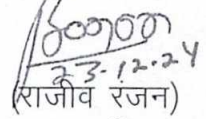 23.12.24
(राजीव रंजन)